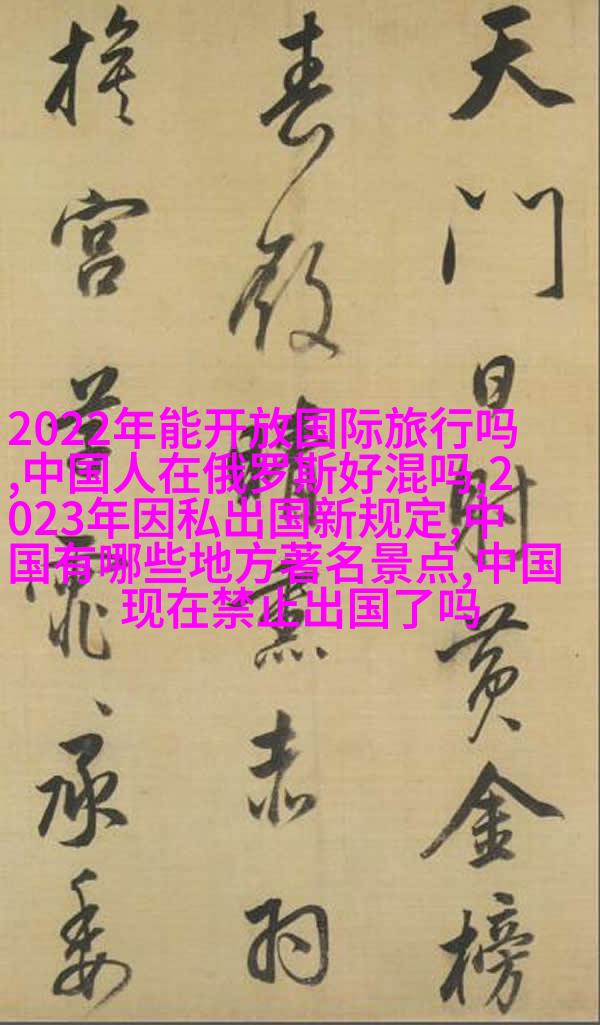 天門日射黃金榜
春殿晴熏赤羽
旗宮草霏、承委
2022年能开放国际旅行吗
,中国人在俄罗斯好混吗,2
023年因私出国新规定,中
国有哪些地方著名景点,中国
现在禁止出国了吗